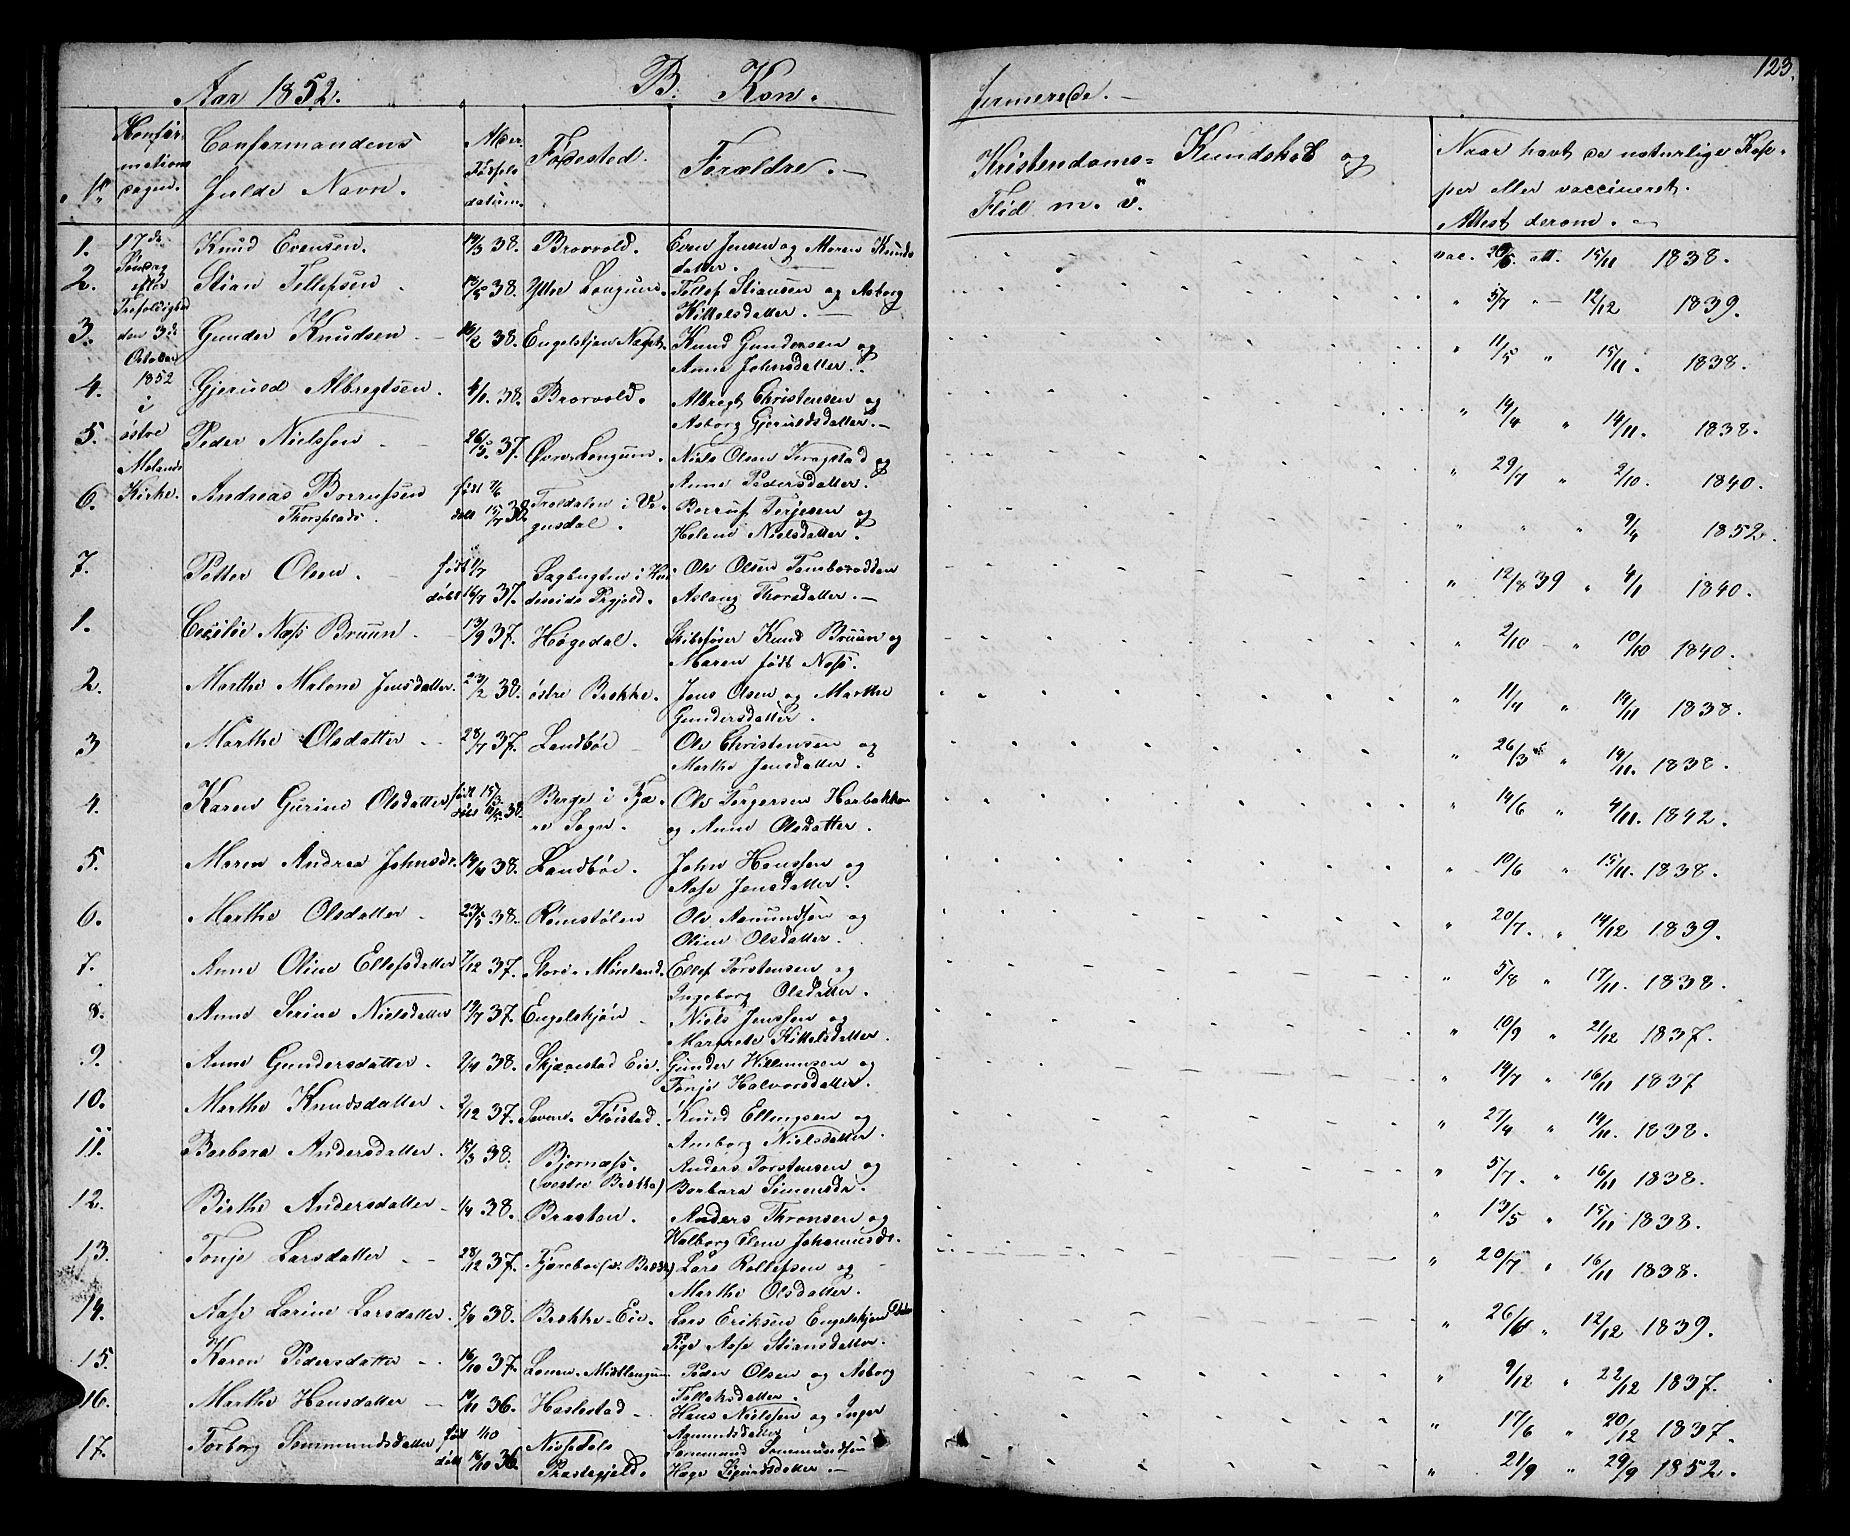 123.
Aar 1852. B. Kon. firmerede.
No Konfirmations dagen. Confirmandens fulde Navn. Alder. Fødsels datum. Fødested. Forældre. Kristendoms= Kundskab og Flid m. v. Naar havt de naturlige Kopper eller vaccineret. Attest derom.
17de Søndag efter Trefoldighed den 3de October 1852 i østre Molands Kirke.
1. Knud Evensen. 38. Brovold. Even Jensen og Maren Knudsdatter. vac. att. 15/11 1838.
2. Stian Tellefsen 38. Ytre Longum. Tellef Stiansen og Asborg Kittelsdatter. " 5/7 " 12/12 1839.
3. Gunder Knudsen 16/2 38. Engelskjøn Knud Gundersen og Anne Johnsdatter. " 11/5 " 15/11. 1838.
4. Gjeruld Albregtsen. 4/1. 38. Brovold. Albregt Christensen og Asborg Gjeruldsdatter. " 14/4 " 14/11. 1838.
5. Peder Nielssen 26/5. 37. Øvre Longum. Niels Olsen og Anne Pedersdatter. " 29/7 " 2/10. 1840.
6. Andreas Borrufsen Thorsplads. født døbt 15/7 38. Treldalen i Vegusdal. Borruf Terjesen og Helene Nielsdatter. " " " 9/4 1852.
7. Petter Olsen. født 1/7 døbt 16/7 37. Sagbugten i Hvideseids Pgjeld. Ole Olsen Tambarodden Aslaug Thorsdatter. " 12/8 39 " 4/1 1840.
1. Cecilie Næss Bruun. 13/9 37. Høgedal. Skibsfører Knud Bruun og Maren født Næss. " 2/10 " 10/10 1840.
2. Marthe Malene Jensdatter. 23/2 38. østre Bekke. Jens Olsen og Marthe Gundersdatter. " 11/4 " 14/11 1838.
3 Marthe Olsdatter 28/7 37. Landbøe Ole Christensen og Marthe Jensdatter. " 26/3 " 14/11. 1838.
4. Karen Gurine Olsdatter født 15/3 døbt 38. Berge i Fjære Sogn. Ole Tergersen Harbakken og Anne Olsdatter. " 14/6 " 4/11. 1842.
5. Maren Andrea Johnsdr. 38. Landbøe. John Hanssen og Aase Jensdatter. " 10/6 " 15/11. 1838.
6. Marthe Olsdatter 38. Rømstølen Ole Aamundsen og Oline Olsdatter. " 20/7. " 14/12 1839.
7. Anne Oline Ellefsdatter 7/12 37. Store Mæsland. Ellef Torstensen og Ingeborg Olsdatter. " 5/8 " 17/11. 1838.
8. Anne Serine Nielsdatter 19/7 37. Engelskjøn Niels Jenssen og Margrete Kittelsdatter. " 10/9 " 21/12 1837.
9. Anne Gundersdatter. 38. Skjævestad Eie. Gunder Willumsen og Tonje Halvorsdatter. " 14/7 " 16/11 1837
10. Marthe Knudsdatter 2/12 37. Fløistad. Knud Ellingsen og Amborg Nielsdatter. " 27/4 " 14/11. 1838.
11. Barbara Andersdatter. 38. Bjornæss. (vestre Bekke) Anders Torstensen og Barbara Simonsdr. " 5/7. " 16/11 1838.
12. Birthe Andersdatter 38. Brasten. Anders Thronsen og Walborg Elene Johannesdr. " 13/5 " 15/11 1838.
13. Tonje Larsdatter 28/12 37. Fjæreboe (v. Bekke) Lars Rollefsen og Marthe Olsdatter. " 20/7 " 16/11 1838.
14. Aase Larine Larsdatter. 38. Bekke-Eie. Lars Eriksen Engelskjøn Pige Aase Stiansdatter. " 26/11 " 12/12 1839.
15. Karen Pedersdatter 16/10 37. Midtlongum Peder Olsen og Asborg Tellefsdatter. " 9/12 " 22/12 1837.
16. Marthe Hansdatter 36. Haslestad Hans Nielssen og Inger Aamundsdatter " 17/6 " 20/12 1837.
17. Torborg Sommundsdatter født 1/10 døbt 16/10 36. Nissedals Præstegjeld. Sommund Sommundssen Hage Sigurdsdatter. " 21/9 " 29/9 1852.